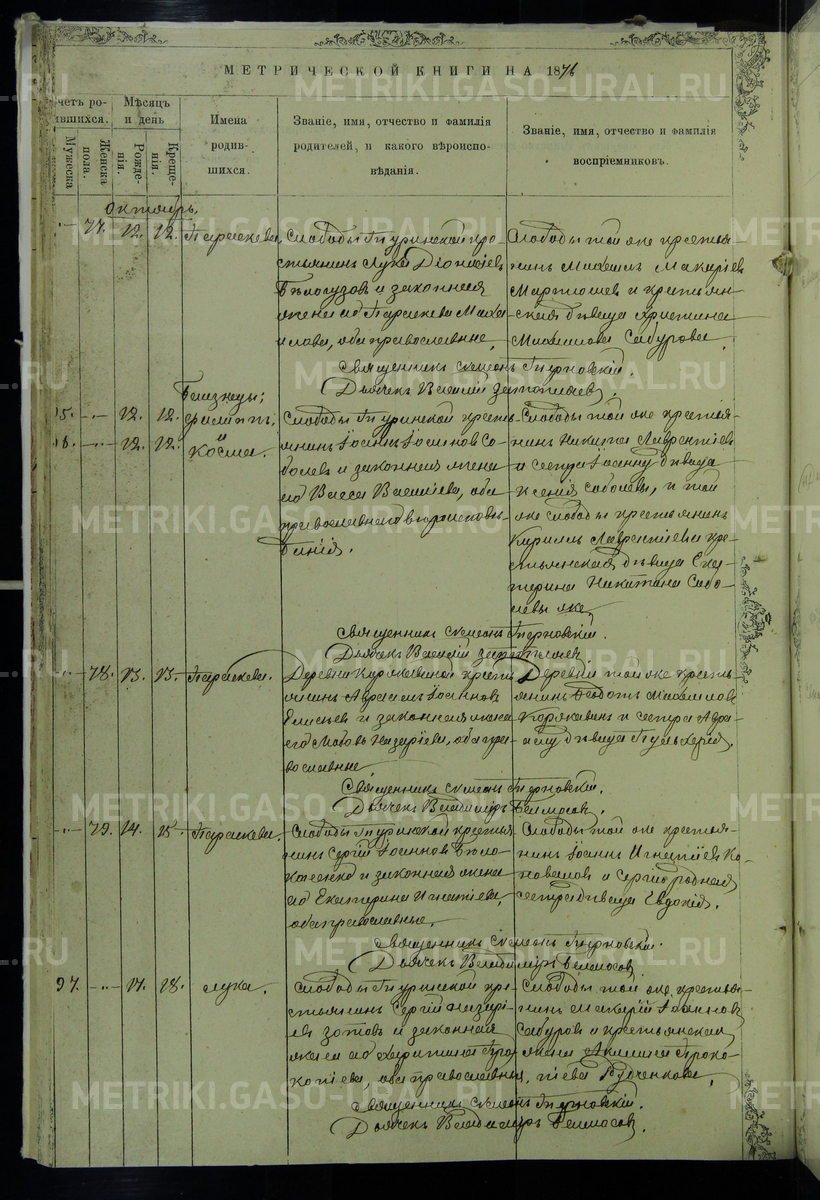 МЕТРИЧЕСКОЙ КНИГИ НА 1876
METRIKI.GASO-URAL.RU
четъ ро-
ившихся.
Мѣсяцъ
и день
Имена
родив-
шихся.
Званіе, имя, отчество и фамилія
родителей, и какого вѣроиспо-
вѣданія.
Званіе, имя, отчество и фамилія
воспріемниковъ.
Мужеска
Женска
пола.
Рожде-
нія.
Креще-
нія.
Октябрь.
77. 12. 12. Параскева.
Слободы Туринской кре-
стьянинъ Лука Діонисіев
Бѣлогузовъ и законная
жена его Параскева Миха
илова, оба православные.
Слободы той же крестья-
нинъ Михаилъ Макаріев
Мартюшев и крестьян-
ская дѣвица Христина
Михаилова Сабурова.
Священникъ Симеонъ Терновскій.
Дьячекъ Василій
Близнецы:
15. 12. 12. Филиппъ
и
16. 12. 12. Косма.
Слободы Туринской кресть-
янинъ Іоаннъ Іоанновъ Со-
болевъ и законная жена
его Васса Василіева, оба
православнаго вѣроисповѣ-
данія.
Слободы той же крестья-
нинъ Никита Лаврентіев
и сестра Іоанну дѣвица
Ксенія Соболевы, и той
же слободы крестьянинъ
Кириллъ Лаврентіев и кре-
стьянская дѣвица Ека-
терина Никитина Собо-
левы же.
Священникъ Симеонъ Терновскій.
Дьячекъ Василій
78. 13. 13. Параскева.
Деревни Коряковиной кресть
янинъ Авраамъ Іоаннов
Елисѣевъ и законная жена
его Любовь Назаріева, оба пра-
вославные
Деревни той же кресть-
янинъ Михаиловъ
Корякинъ и сестра Авра-
аму дѣвица Пульхерія.
Священникъ Симеонъ Терновскій.
Дьячекъ Владиміръ
79. 14. 15. Параскева.
Слободы Туринской крестья
нинъ Сергій Іоаннов
и законная жена
его Екатерина Игнатіева,
оба православные.
Слободы той же крестья-
нинъ Іоаннъ Игнатіев Ко-
новаловъ и Сергію родная
сестра дѣвица Евдокія.
Священникъ Симеонъ Терновскій.
Дьячекъ Владиміръ
97. 17. 18. Лука.
Слободы Туринской кре-
стьянинъ Сергій Назарі-
евъ Зотовъ и законная
жена его Харитина Про-
копіева, оба православныя.
Слободы той же крестья-
нинъ Макарій Іоаннов
Сабуровъ и крестьянская
жена Акилина Проко-
піева
Священникъ Симеонъ Терновскій.
Дьячекъ Владиміръ